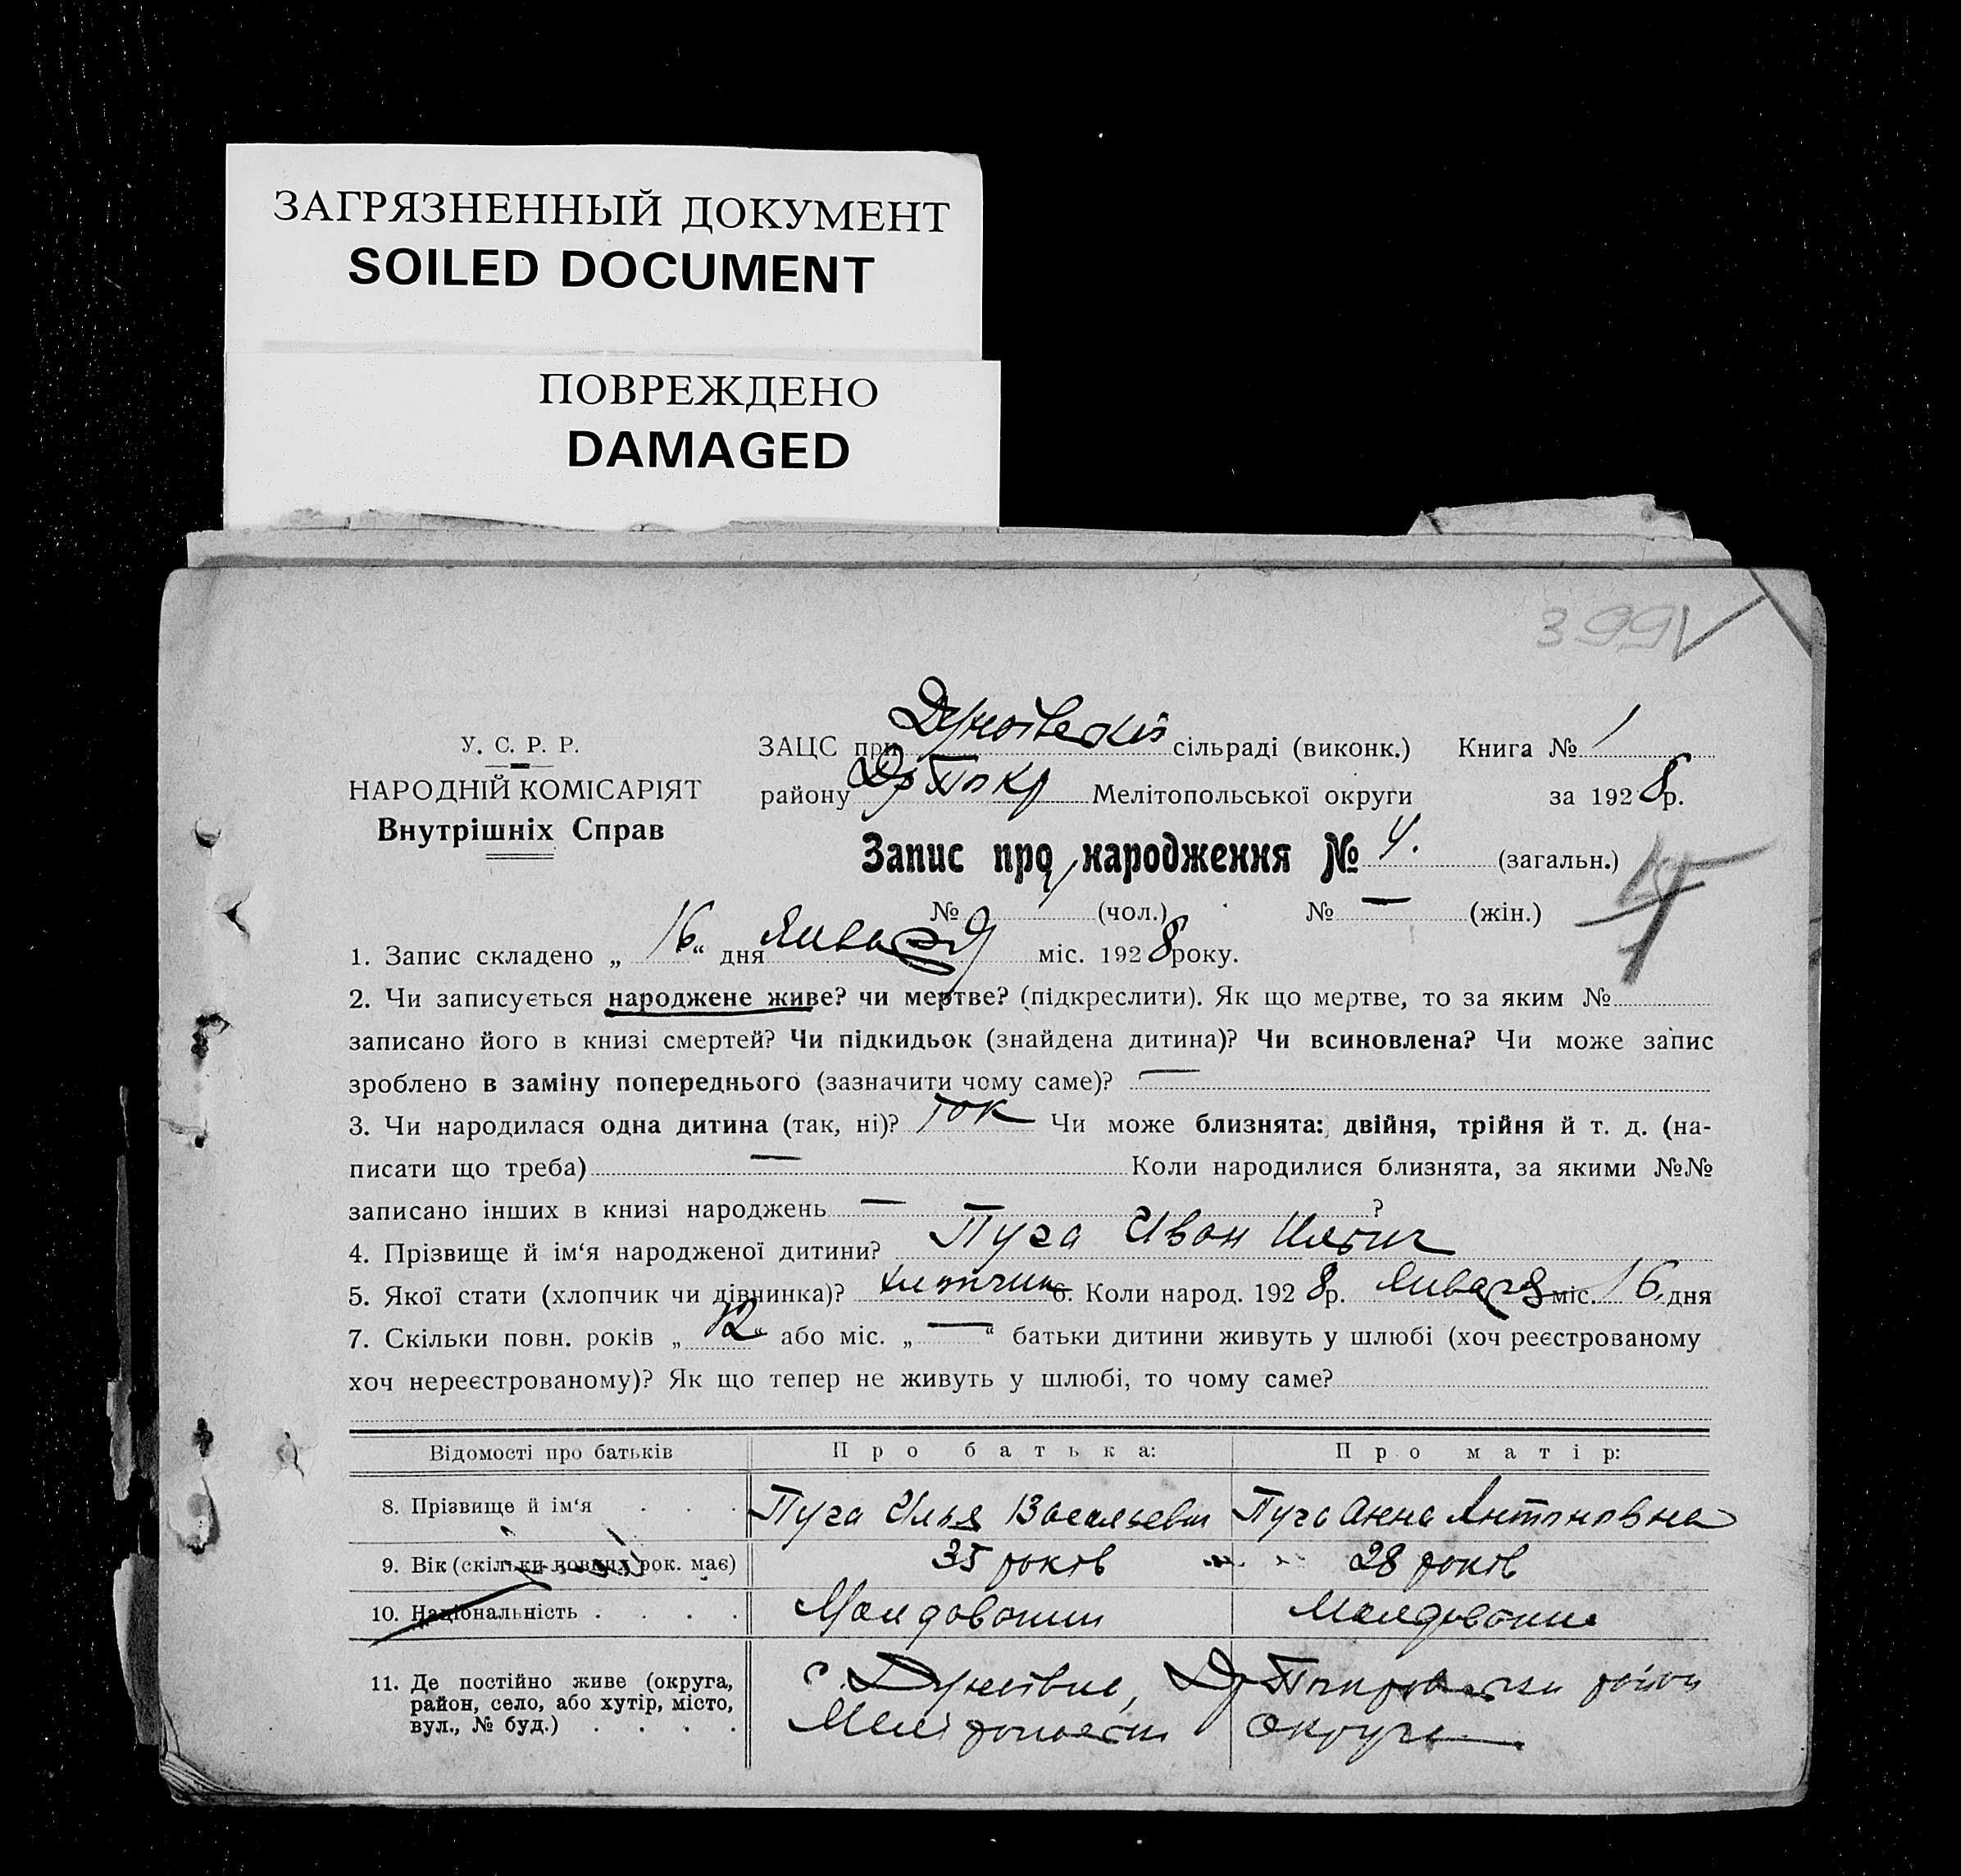 ЗАГРЯЗНЕННЫЙ ДОКУМЕНТ
SOILED DOCUMENT
ПОВРЕЖДЕНО
DAMAGED
399
У. С. Р. Р.
НАРОДНІЙ КОМІСАРІЯТ
Внутрішніх Справ
ЗАЦС при сільраді (виконк.) Книга № 1
району Др Покр Мелітопольської округи за 1928 р.
Запис про народження № 4. (загальн.)
№ (чол.) № — (жін.)
1. Запис складено „ 16 “ дня Января міс. 1928 року.
2. Чи записується народжене живе? чи мертве? (підкреслити). Як що мертве, то за яким №
записано його в книзі смертей? Чи підкидьок (знайдена дитина)? Чи всиновлена? Чи може запис
зроблено в заміну попереднього (зазначити чому саме)? —
3. Чи народилася одна дитина (так, ні)? так Чи може близнята: двійня, трійня й т. д. (на-
писати що треба) — Коли народилися близнята, за якими №№
записано інших в книзі народжень — ?
4. Прізвище й ім‘я народженої дитини? Пуга Иван Ильич
5. Якої стати (хлопчик чи дівчинка)? хлопчик 6. Коли народ. 1928 р. Января міс. 16. дня
7. Скільки повн. років „ 12 “ або міс. „ — “ батьки дитини живуть у шлюбі (хоч реєстрованому
хоч нереєстрованому)? Як що тепер не живуть у шлюбі, то чому саме?
Відомості про батьків Про батька: Про матір:
8. Прізвище й ім‘я . . . Пуга Илья Васильевич Пуга Анна Антоновна
9. Вік (скільки повних рок. має) 35 років 28 років
10. Національність . . . . Молдовани Молдовани
11. Де постійно живе (округа,
район, село, або хутір, місто,
вул., № буд.) . . . .
с. Др Покровськи район
округи